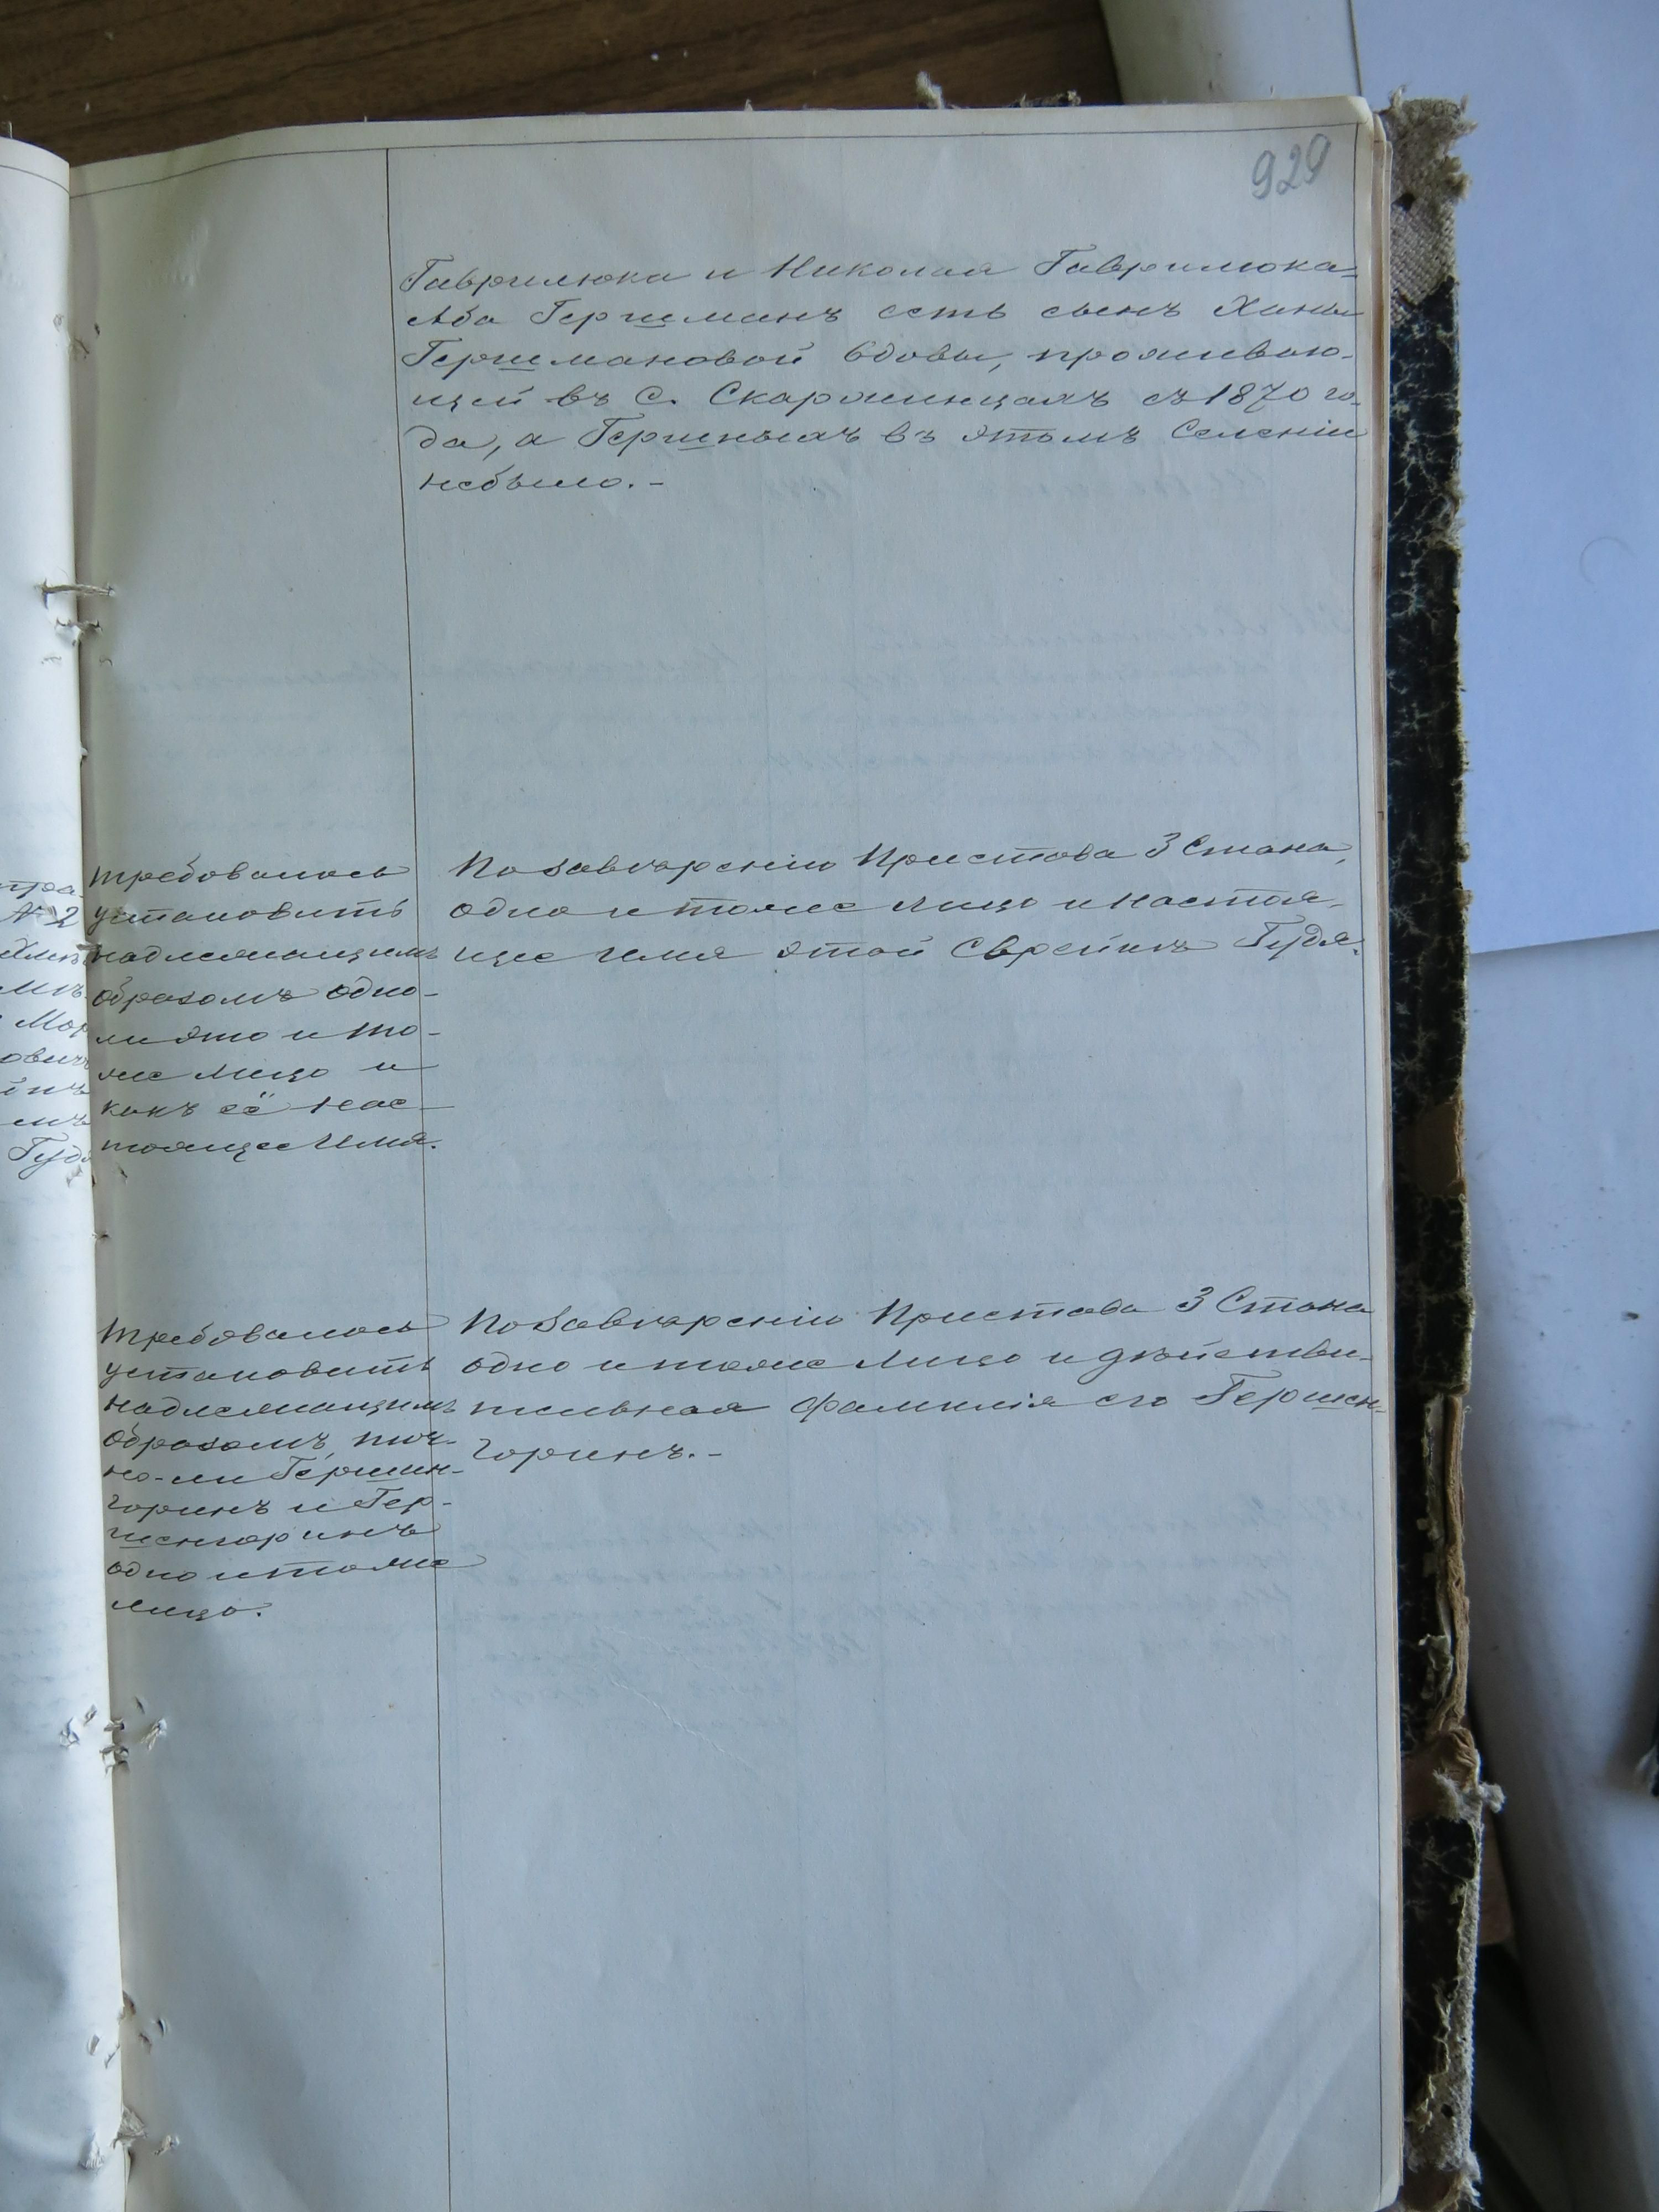 929
Гаврилюка и Николая Гаврилюка-
Аба Гершманъ есть сынъ Ханы
Гершмановой вдовы, проживаю-
щей въ с. Скаржинцахъ съ 1870 го-
да, а Гершныхъ въ этомъ селеніи
небыло. -
требовалось
установить
надлежащимъ
образомъ одно-
ли это и то-
же лицо и
какъ её нас-
тоящее имя.
По завѣренію Пристава 3 Стана,
одно и тоже лицо и настоя-
щее имя этой Еврейки Гудя.
требовалось
установить
надлежащимъ
образомъ, точ-
но-ли Гершин-
горинъ и Гер-
шенгоринъ
одно и тоже
лицо.
По завѣренію Пристава 3 Стана
одно и тоже лицо и дѣйстви-
тельная фамилія его Гершен-
горинъ. -
№ 2
Мор
ович
Гудя